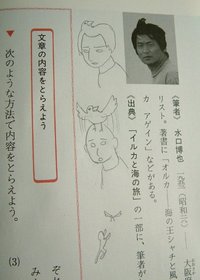 〈筆者〉 水口博也 一九五三(昭和二八)― 大阪
リスト。著書に「オルカ 海の王シャチと風
カ アゲイン」などがある。
〈出典〉 「イルカと海の旅」の一部に、筆者が
文章の内容をとらえよう
▼ 次のような方法で内容をとらえよう。
(3)
み